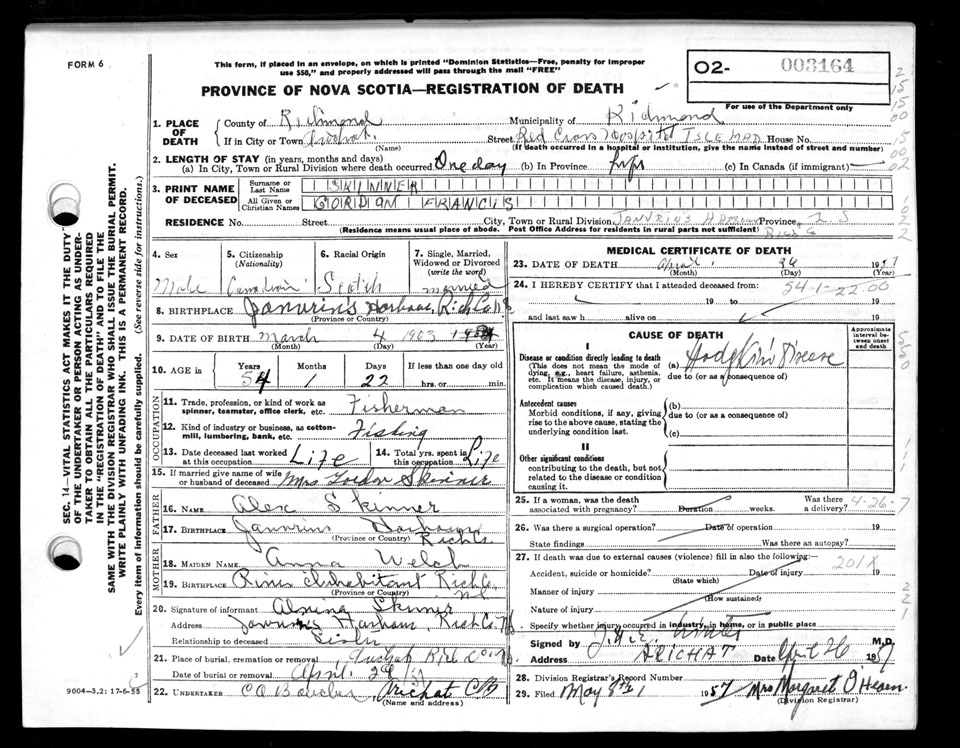 FORM 6
This form, if placed in an envelope, on which is printed "Dominion Statistics—Free, penalty for improper
use $50," and properly addressed will pass through the mail "FREE"
O2- 003164
For use of the Department only
PROVINCE OF NOVA SCOTIA—REGISTRATION OF DEATH
1. PLACE OF DEATH
County of Richmond Municipality of Richmond
If in City or Town Arichat. Street Red Cross Hospital ISLE MAD House No.
(Name) (If death occurred in a hospital or institution, give the name instead of street and number)
2. LENGTH OF STAY (in years, months and days)
(a) In City, Town or Rural Division where death occurred One day (b) In Province (c) In Canada (if immigrant)
3. PRINT NAME OF DECEASED
Surname or Last Name SKINNER
All Given or Christian Names GORDON FRANCIS
RESIDENCE No. Street City, Town or Rural Division JANVRINS HARBOUR Province
(Residence means usual place of abode. Post Office Address for residents in rural parts not sufficient) Rich Co
4. Sex Male
5. Citizenship (Nationality) Canadian
6. Racial Origin Scotish
7. Single, Married, Widowed or Divorced (write the word) married
8. BIRTHPLACE Janvrin's Harbour, Rich Co NS
(Province or Country)
9. DATE OF BIRTH March 4 1903
(Month) (Day) (Year)
10. AGE in Years Months Days If less than one day old
54 1 22 hrs. or min.
OCCUPATION
11. Trade, profession, or kind of work as
spinner, teamster, office clerk, etc. Fisherman
12. Kind of industry or business, as cotton-
mill, lumbering, bank, etc. Fishing
13. Date deceased last worked at this occupation Life
14. Total yrs. spent in this occupation Life
15. If married give name of wife
or husband of deceased Mrs Gordon Skinner
FATHER
16. NAME Alex Skinner
17. BIRTHPLACE Janvrins Harbour Rich Co.
(Province or Country)
MOTHER
18. MAIDEN NAME Anna Welch
19. BIRTHPLACE River Inhabitant Rich Co.
(Province or Country)
20. Signature of informant Skinner
Address Janvrins Harbour, Rich Co. NS
Relationship to deceased Sister
21. Place of burial, cremation or removal Arichat Rich Co. NS
Date of burial or removal April 29
22. UNDERTAKER Arichat CB
(Name and address)
MEDICAL CERTIFICATE OF DEATH
23. DATE OF DEATH April 26 1957
(Month) (Day) (Year)
24. I HEREBY CERTIFY that I attended deceased from: 54-1-22.00
19 to 19
and last saw h alive on 19
CAUSE OF DEATH
Approximate interval between onset and death
I
Disease or condition directly leading to death
(This does not mean the mode of
dying, e.g., heart failure, asthenia,
etc. It means the disease, injury, or
complication which caused death.)
(a) Hodgkin's Disease
due to (or as a consequence of)
Antecedent causes
Morbid conditions, if any, giving
rise to the above cause, stating the
underlying condition last.
(b)
due to (or as a consequence of)
(c)
II
Other significant conditions
contributing to the death, but not
related to the disease or condition
causing it.
25. If a woman, was the death Was there 4-26-7
associated with pregnancy? Duration weeks. a delivery?
26. Was there a surgical operation? Date of operation 19
State findings Was there an autopsy?
27. If death was due to external causes (violence) fill in also the following:
Accident, suicide or homicide? Date of injury 201X 19
(State which)
Manner of injury
(How sustained)
Nature of injury
Specify whether injury occurred in industry, in home, or in public place
Signed by M.D.
Address ARICHAT Date April 26 1957
28. Division Registrar's Record Number
29. Filed May 8th 1957 Mrs Margaret O'Hearn.
(Division Registrar)
SEC. 14—VITAL STATISTICS ACT MAKES IT THE DUTY
OF THE UNDERTAKER OR PERSON ACTING AS UNDER-
TAKER TO OBTAIN ALL THE PARTICULARS REQUIRED
IN THE "REGISTRATION OF DEATH" AND TO FILE THE
SAME WITH THE DIVISION REGISTRAR WHO SHALL ISSUE THE BURIAL PERMIT.
WRITE PLAINLY WITH UNFADING INK. THIS IS A PERMANENT RECORD.
Every item of information should be carefully supplied. (See reverse side for instructions.)
9004—3.2: 17-6-55